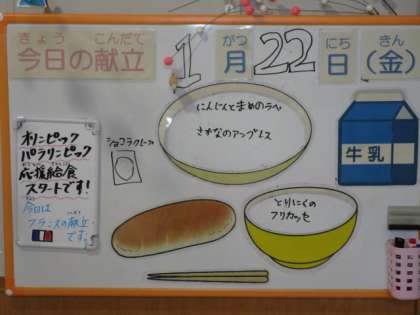 きょう こんだて
今日の献立
1月22日(金)
がつ にち きん
オリンピック
パラリンピック
応援給食
スタートです!
今日は
フランスの献立
です。
ショコラクレープ
にんじんとまめのラペ
さかなのアングレス
牛乳
とりにくの
フリカッセ